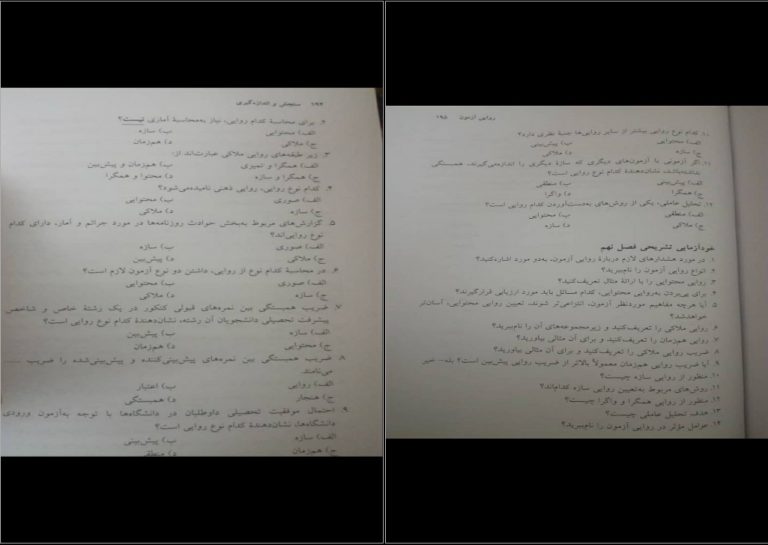 ۱۹۴ سنجش و اندازه‌گیری
۲. برای محاسبهٔ کدام روایی، نیاز به‌محاسبهٔ آماری نیست؟
الف) محتوایی ب) سازه
ج) ملاکی د) هم‌زمان
۳. زیر طبقه‌های روایی ملاکی عبارت‌اند از:
الف) همگرا و تمیزی ب) هم‌زمان و پیش‌بین
ج) همگرا و سازه د) محتوا و همگرا
۴. کدام نوع روایی، روایی ذهنی نامیده‌می‌شود؟
الف) صوری ب) محتوایی
ج) سازه د) ملاکی
۵. گزارش‌های مربوط به‌بخش حوادث روزنامه‌ها در مورد جرائم و آمار، دارای کدام
نوع روایی‌اند؟
الف) صوری ب) سازه
ج) ملاکی د) پیش‌بین
۶. در محاسبهٔ کدام نوع از روایی، داشتن دو نوع آزمون لازم است؟
الف) صوری ب) محتوایی
ج) سازه د) ملاکی
۷. ضریب همبستگی بین نمره‌های قبولی کنکور در یک رشتهٔ خاص و شاخص
پیشرفت تحصیلی دانشجویان آن رشته، نشان‌دهندهٔ کدام نوع روایی است؟
الف) سازه ب) پیش‌بین
ج) محتوایی د) هم‌زمان
۸. ضریب همبستگی بین نمره‌های پیش‌بینی‌کننده و پیش‌بینی‌شده را ضریب ......
می‌نامند.
الف) روایی ب) اعتبار
ج) هنجار د) همبستگی
۹. احتمال موفقیت تحصیلی داوطلبان در دانشگاه‌ها با توجه به‌آزمون ورودی
دانشگاه‌ها، نشان‌دهندهٔ کدام نوع روایی است؟
الف) سازه ب) پیش‌بینی
ج) هم‌زمان د) منطقی
روایی آزمون ۱۹۵
۱۰. کدام نوع روایی بیشتر از سایر روایی‌ها جنبهٔ نظری دارد؟
الف) محتوایی ب) پیش‌بینی
ج) سازه د) ملاکی
۱۱. اگر آزمونی با آزمون‌های دیگری که سازهٔ دیگری را اندازه‌می‌گیرند، همبستگی
نداشته‌باشد، نشان‌دهندهٔ کدام نوع روایی است؟
الف) پیش‌بینی ب) منطقی
ج) همگرا د) واگرا
۱۲. تحلیل عاملی، یکی از روش‌های به‌دست‌آوردن کدام روایی است؟
الف) منطقی ب) محتوایی
ج) ملاکی د) سازه
خودآزمایی تشریحی فصل نهم
۱. در مورد هشدارهای لازم دربارهٔ روایی آزمون، به‌دو مورد اشاره‌کنید؟
۲. انواع روایی آزمون را نام‌ببرید؟
۳. روایی محتوایی را با ارائهٔ مثال تعریف‌کنید؟
۴. برای پی‌بردن به‌روایی محتوایی، کدام مسائل باید مورد ارزیابی قرارگیرند؟
۵. آیا هرچه مفاهیم موردنظر آزمون، انتزاعی‌تر شوند، تعیین روایی محتوایی، آسان‌تر
خواهدشد؟
۶. روایی ملاکی را تعریف‌کنید و زیرمجموعه‌های آن را نام‌ببرید؟
۷. روایی هم‌زمان را تعریف‌کنید و برای آن مثالی بیاورید؟
۸. ضریب روایی ملاکی را تعریف‌کنید و برای آن مثالی بیاورید؟
۹. آیا ضریب روایی هم‌زمان معمولاً بالاتر از ضریب روایی پیش‌بین است؟ بله- خیر
۱۰. منظور از روایی سازه چیست؟
۱۱. روش‌های مربوط به‌تعیین روایی سازه کدام‌اند؟
۱۲. منظور از روایی همگرا و واگرا چیست؟
۱۳. هدف تحلیل عاملی چیست؟
۱۴. عوامل مؤثر در روایی آزمون را نام‌ببرید؟